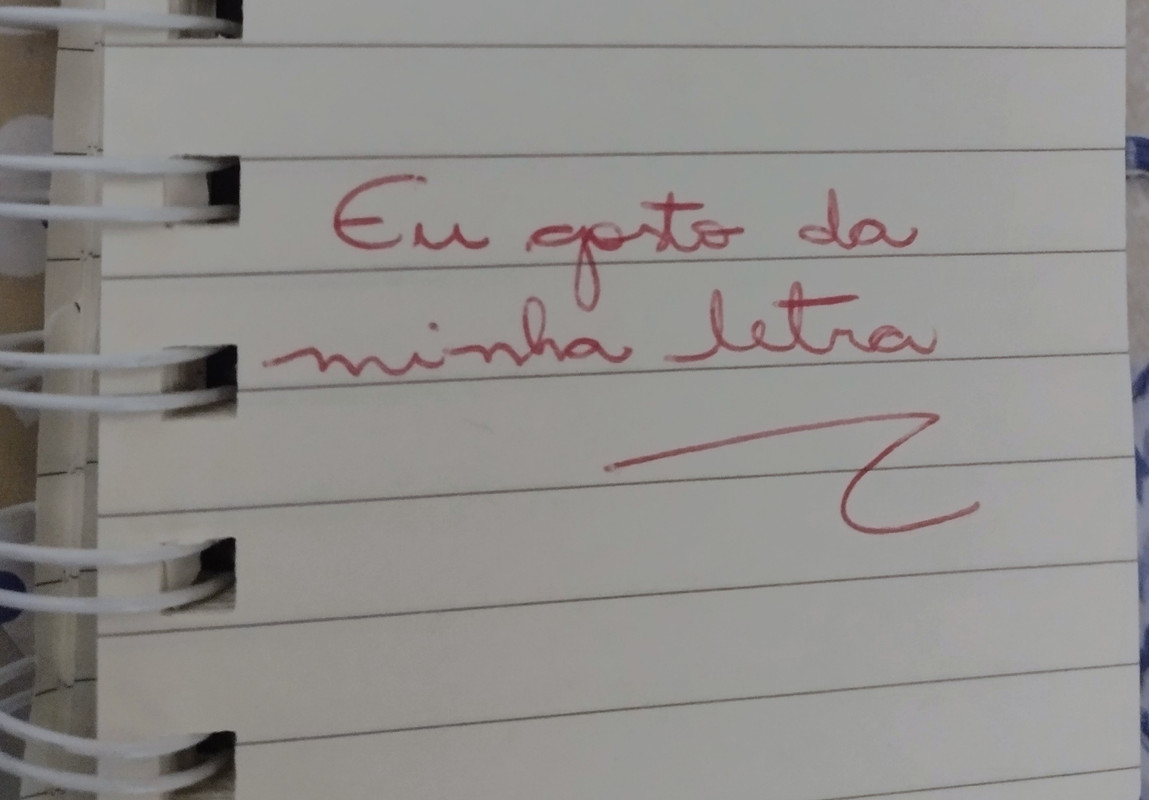 Eu gosto da
minha letra